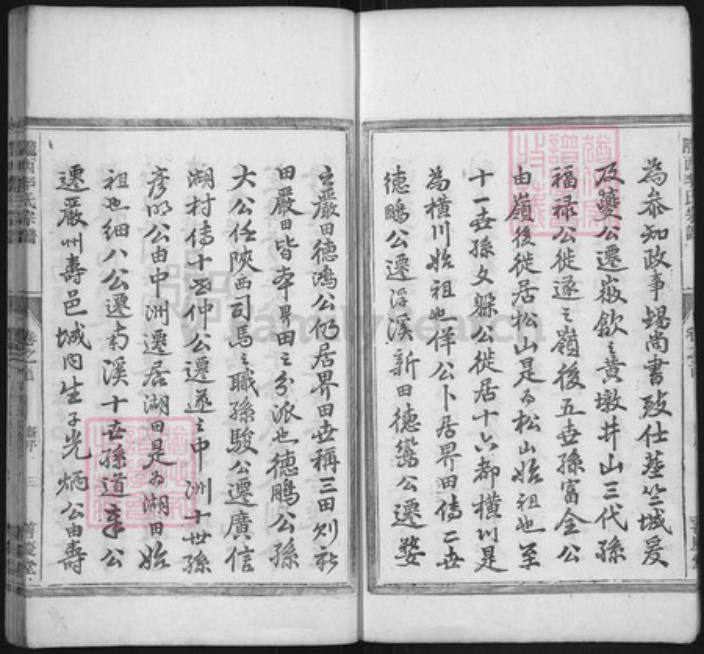 為泰知政事揚尚書致仕蓋竺城爰
及夔公遷嚴歙之黄墩井山三代孫
福禄公徙遂之嶺後五世孫富全公
由嶺後徙居松山是為松山始祖也至
十一世孫文躲公徙居十六都橫川是
為橫川始祖也伴公卜居界田傳二世
德鵬公遷浮溪新田德鸞公遷婺
之嚴田德鴻公仍居界田世稱三田
田嚴田皆本界田之分派也德鵬公孫
大公任陝西司馬之職孫駿公遷廣信
湖村傳十世仲公遷遂之中洲十世孫
彥明公由中洲遷居湖田是為湖田始
祖也細八公遷南溪十世孫道章公
遷嚴州壽邑城内生子光炳公由壽
隴西李氏宗譜
卷之首
善慶堂